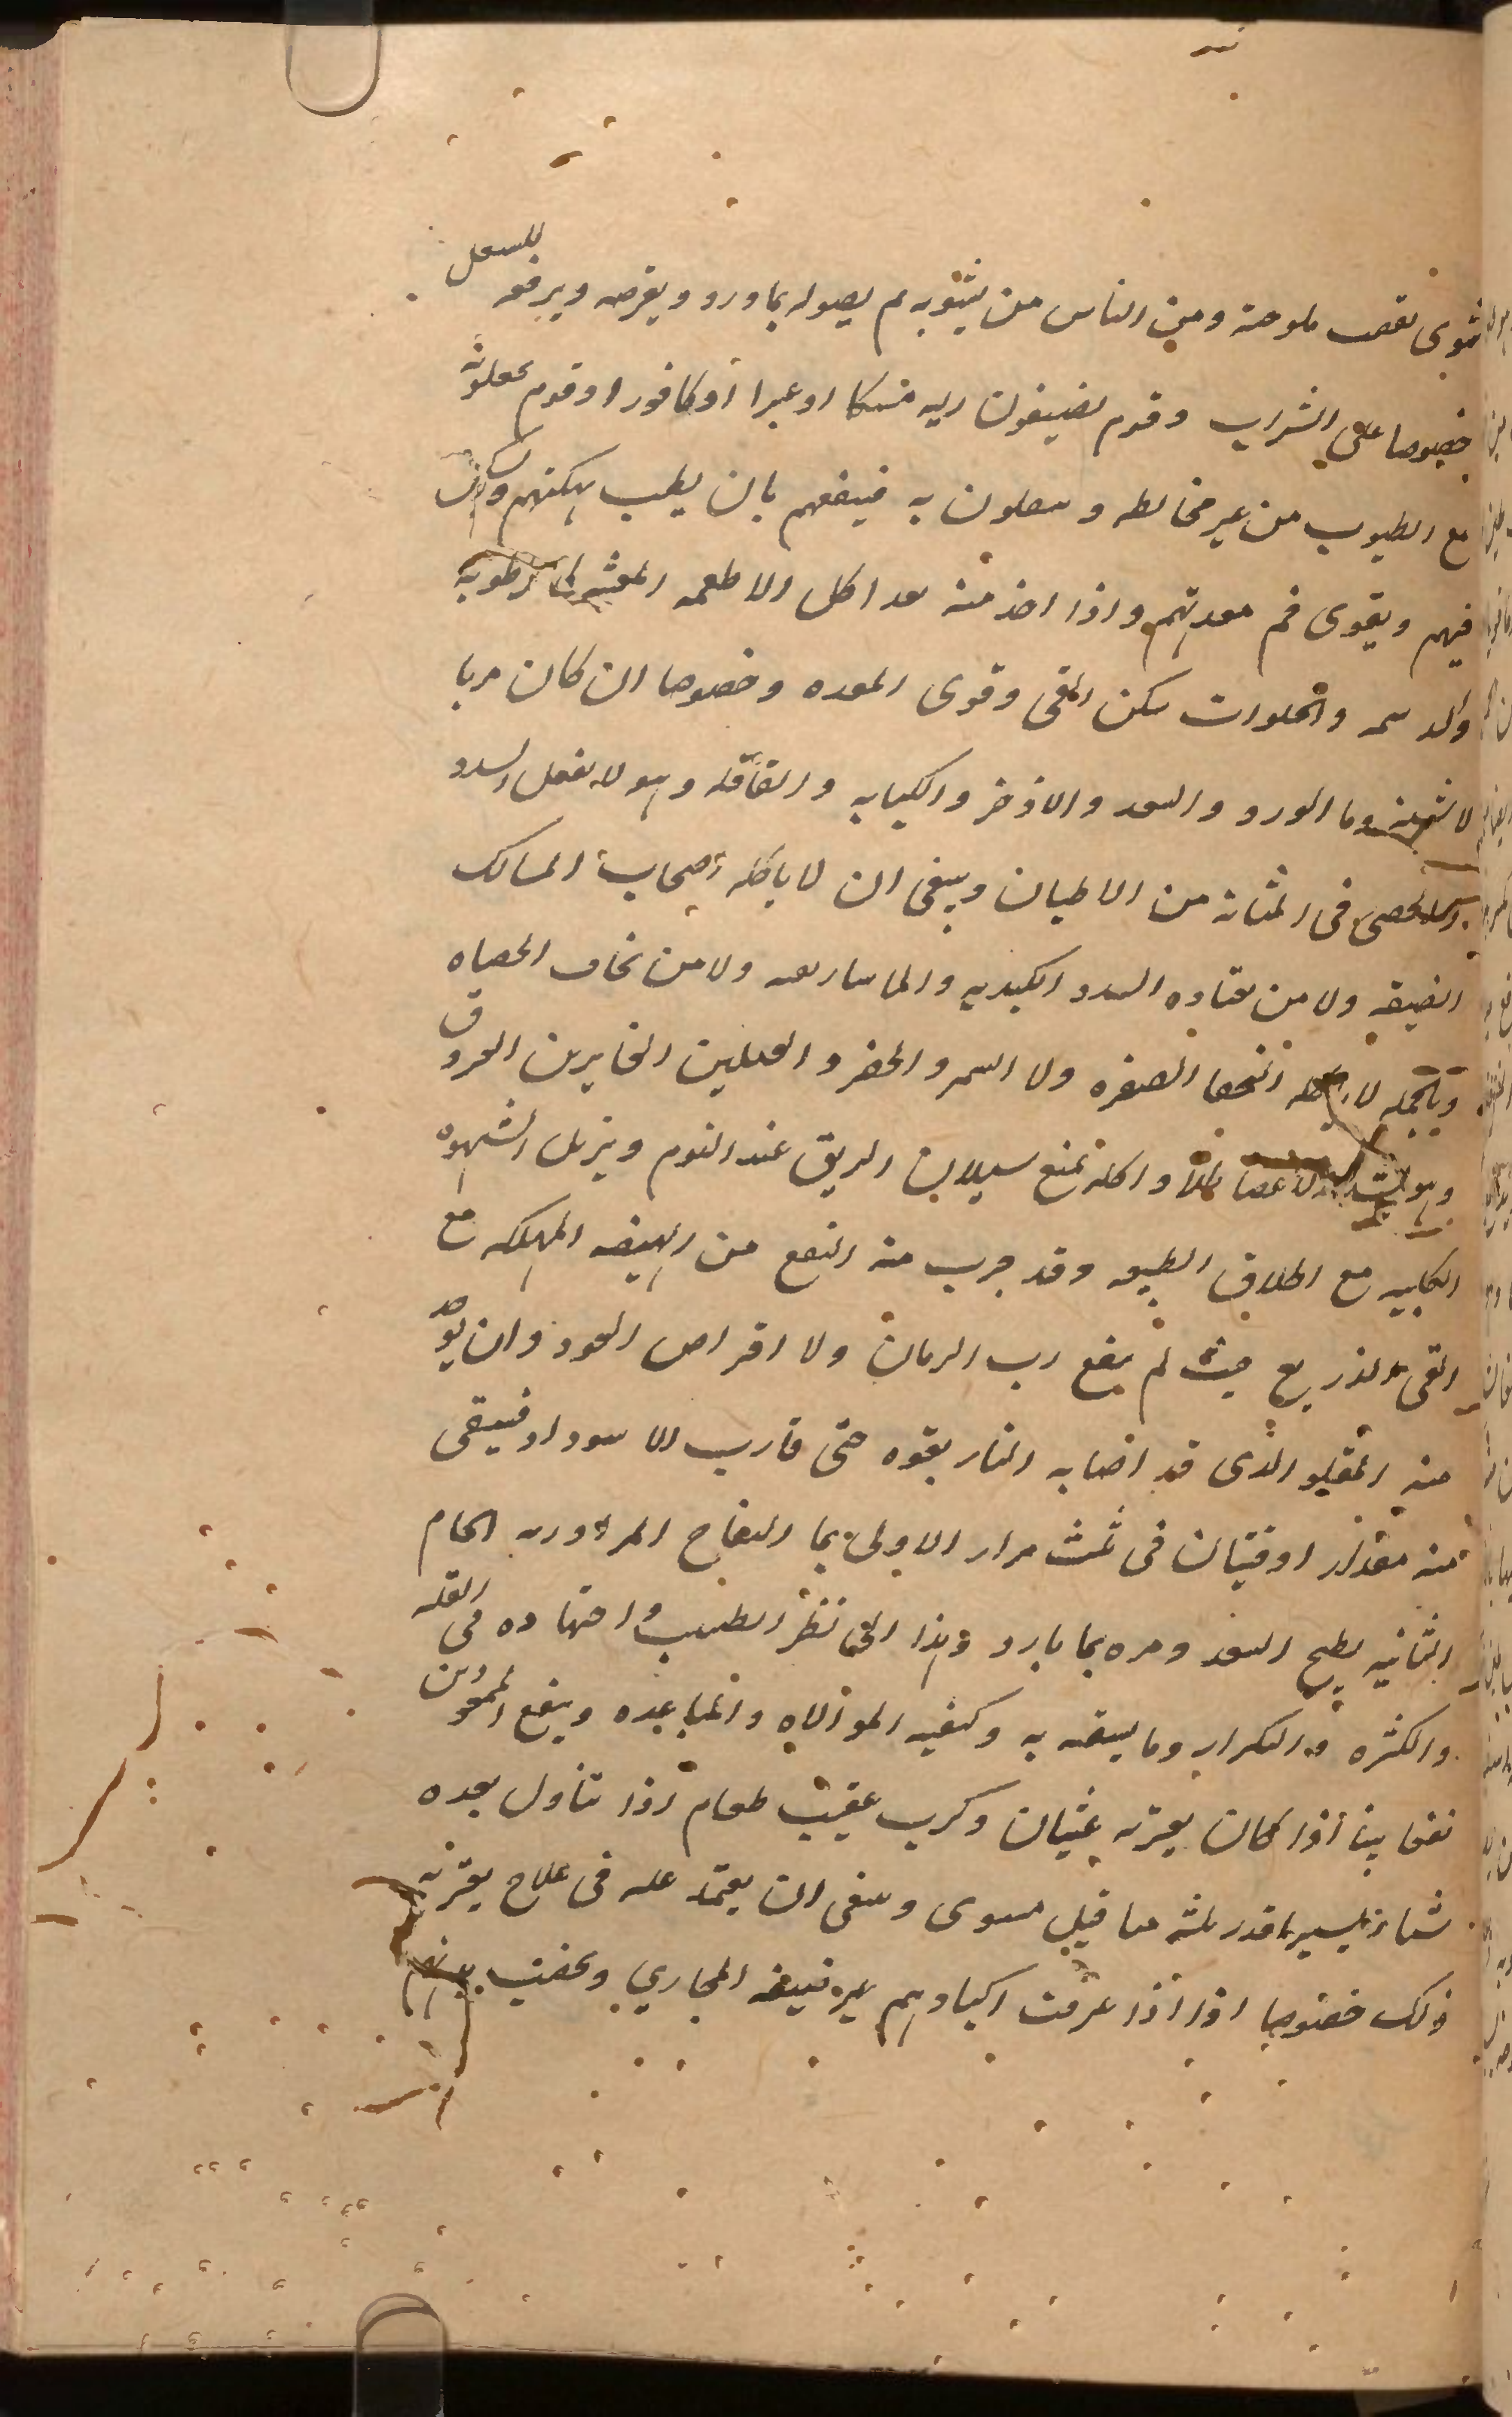 شوى نقصت ملوحته ومن الناس من يشويه ثم يصوله بماورد ويقرصه ويرفعه للسعل
خصوصا على الشراب وقوم يضيفون اليه مسكا او عنبرا او كافورا وقوم يجعلونه
مع الطيوب من غير مخالطه وسعلون به فينفعهم بان يطيب نكهتهم
فيهم ويقوى فم معدتهم واذا اخذ منه بعد اكل الاطعمه رطوبه
والدسمه والحلوات سكن القى وقوى المعده وخصوصا ان كان مربا
وما الورد والسعد والاذخر والكبابه والقاقله وهو لا يفعل السدد
الحصى فى المثانة من الاطيان وينبغى ان لا ياكله اصحاب المسالك
الضيقه ولا من يعتاده السدد الكبديه والماساريقه ولا من يخاف الحصاه
وبالجمله لا النحفا الصفره ولا السمر والخضر والعبلين الغايرين العروق
وهو واكله يمنع سيلان الريق عند النوم ويزيل الشهوه
الكلبيه مع اطلاق الطبيعه وقد جرب منه النفع من الهيضه المهلكه مع
القى الذريع حيث لم ينفع رب الرمان ولا اقراص العود وان يؤخذ
منه المقلو الذى قد اصابه النار بقوه حتى قارب الاسوداد فيسقى
منه مقدار اوقيتان فى ثلث مرار الاولى بما التفاح المر الحام
الثانيه بطبيخ السعد ومره بما بارد وهذا الى نظر الطبيب واجتهاده فى القله
والكثره والتكرار وما يسقيه به وكيفيه الموالاه والمباعده وينفع الممعودين
نفعا بينا اذا كان يعتريه غثيان وكرب عقيب طعام اذا تناول بعده
شيا يسيرا قدر ثلثه مثاقيل مسوى وينبغى ان يعتمد عليه فى علاج يعتريه
ذلك خصوصا اذا اذا عرفت اكبادهم غير ضيقه المجاري